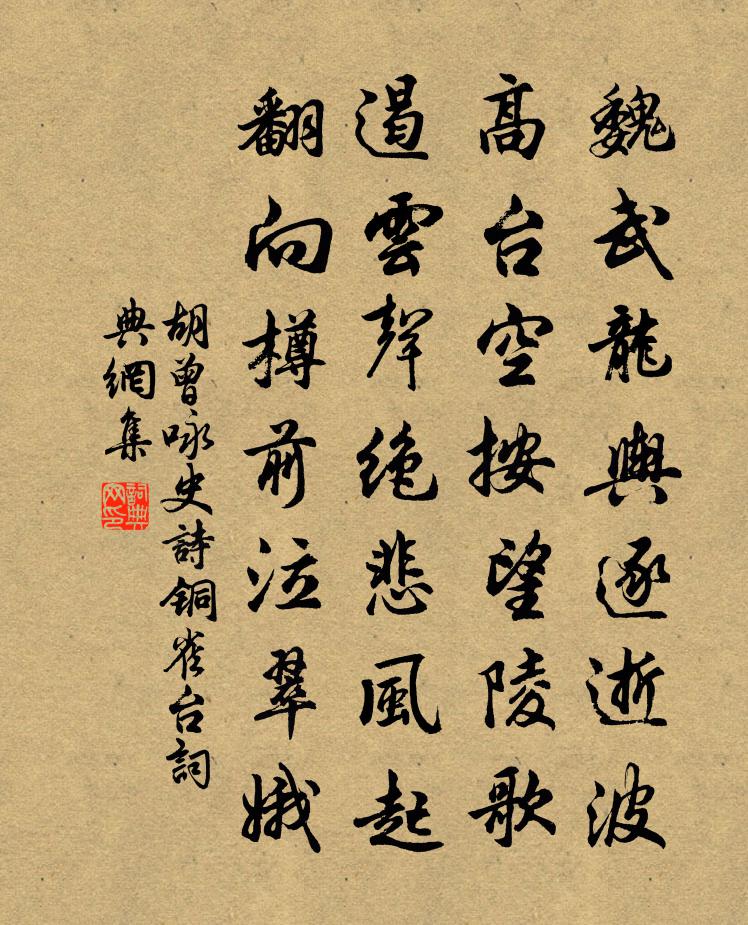 魏武龍輿逐逝波
高台空按望陵歌
遏雲聲絶悲風起
翻向樽前泣翠娥
胡曾咏史詩铜雀台詞
典網集
詞典网印